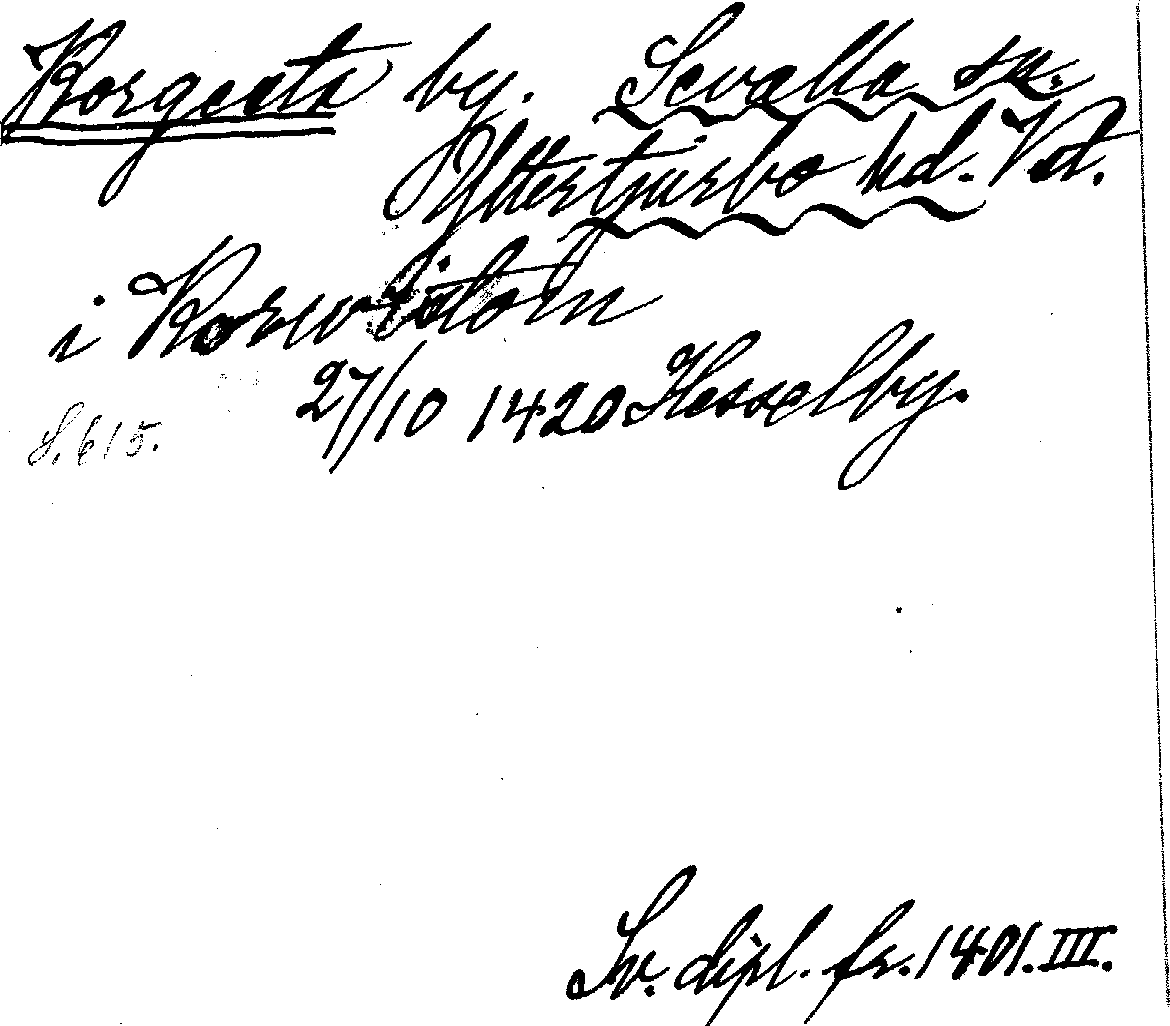 Korgesta by. Sevalla sn.
Yttertjurbo hd. Vstm.
i Korwistom
27/10 1420 Hesselby.
S. 615.
Sv. dipl. fr. 1401. III.